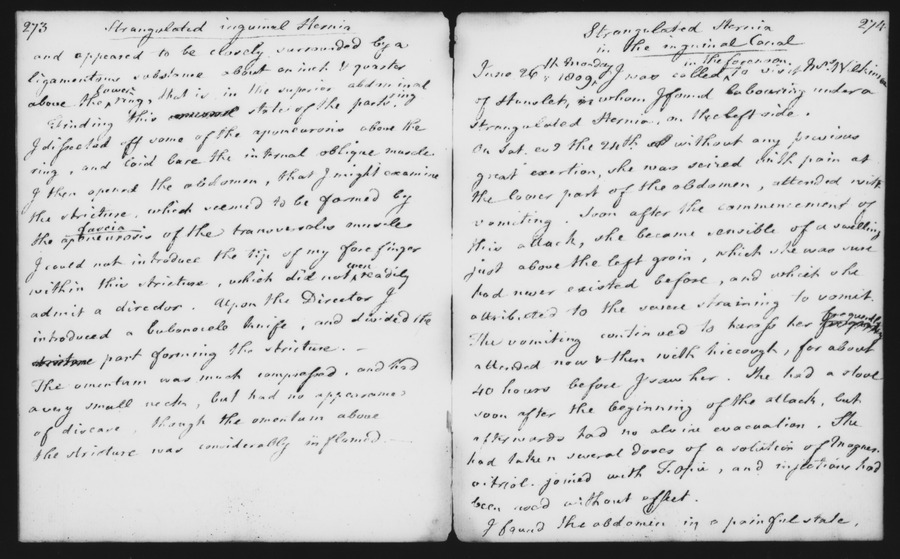 273 Strangulated inguinal Hernia
and appeared to be closely surrounded by a
ligamentous substance about an inch & quarter
above the lower ring, that is in the superior abdominal ring
Finding this state of the parts,
I dissected off some of the aponeurosis above the
ring, and laid bare the internal oblique muscle
I then opened the abdomen, that I might examine
the stricture, which seemed to be formed by
the aponeurosis fascia of the transversalis muscle
I could not introduce the tip of my fore finger
within this stricture, which did not even readily
admit a director. Upon the Director I
introduced a bubonocele knife, and divided the
stricture part forming the stricture. —
The omentum was much compressed, and had
a very small neck, but had no appearance
of disease, though the omentum above
the stricture was considerably inflamed. —
274
Strangulated Hernia
in the inguinal Canal
June 26th Monday 1809, I was called in the forenoon to visit Mrs Wilkinson
of Hunslet, whom I found labouring under a
strangulated Hernia on the left side.
On Sat. the 24th without any previous
great exertion, she was seized with pain at
the lower part of the abdomen, attended with
vomiting. Soon after the commencement of
this attack, she became sensible of a swelling
just above the left groin, which she was sure
had never existed before, and which she
attributed to the severe straining to vomit.
The vomiting continued to harass her frequently
attended now & then with hiccough, for about
40 hours before I saw her. She had a stool
soon after the beginning of the attack, but
afterwards had no alvine evacuation. She
had taken several doses of a solution of Magnes.
vitriol. joined with T. Opii, and injections had
been used without effect.
I found the abdomen in a painful state,